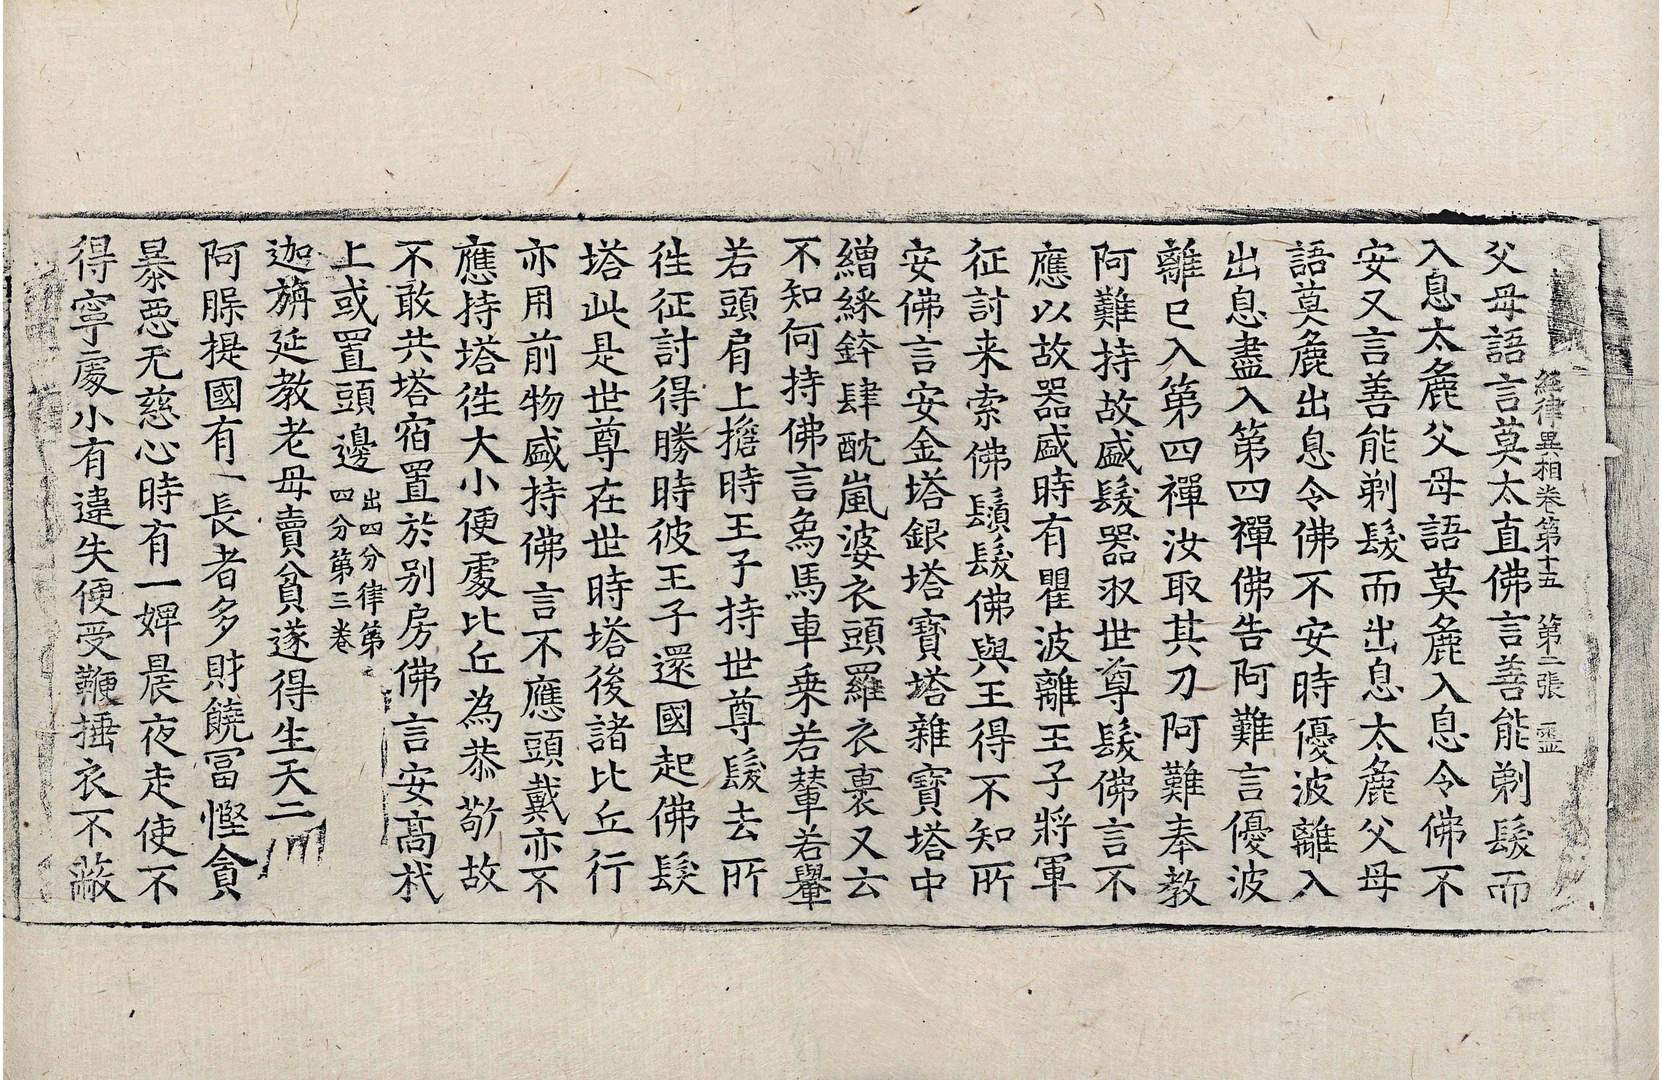 經律異相卷第十五 第二張 靈
父母語言莫太直佛言善能剃髮而
入息太麁父母語莫麁入息令佛不
安又言善能剃髮而出息太麁父母
語莫麁出息令佛不安時優波離入
出息盡入第四禪佛告阿難言優波
離已入第四禪汝取其刀阿難奉教
阿難持故盛髮器収世尊髮佛言不
應以故器盛時有瞿波離王子將軍
征討来索佛鬚髮佛與王得不知所
安佛言安金塔銀塔寶塔雜寶塔中
繒綵鉢肆酖嵐婆衣頭羅衣裹又云
不知何持佛言象馬車乗若輦若轝
若頭肩上擔時王子持世尊髮去所
徃征討得勝時彼王子還國起佛髮
塔此是世尊在世時塔後諸比丘行
亦用前物盛持佛言不應頭戴亦不
應持塔徃大小便處比丘為恭敬故
不敢共塔宿置於别房佛言安髙杙
上或置頭邊出四分律第四分第三卷
迦旃延教老母賣貧遂得生天二
阿腂提國有一長者多財饒冨慳貪
暴惡无慈心時有一婢晨夜走使不
得寧處小有違失便受鞭捶衣不蔽